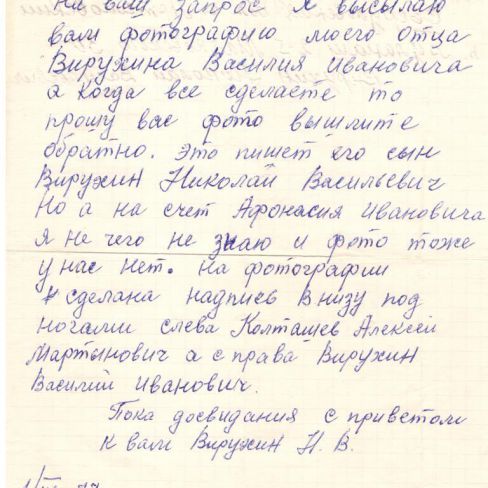 На ваш запрос я высылаю
вам фотографию моего отца
Вирухина Василия Ивановича
а когда все сделаете то
прошу вас фото вышлите
обратно. Это пишет его сын
Вирухин Николай Васильевич
Но а на счет Афонасия Ивановича
я не чего не знаю и фото тоже
у нас нет. На фотографии
сделана надпись внизу под
ногами слева Колташев Алексей
Мартынович а справа Вирухин
Василий Иванович.
Пока досвидания с приветом
к вам Вирухин Н. В.